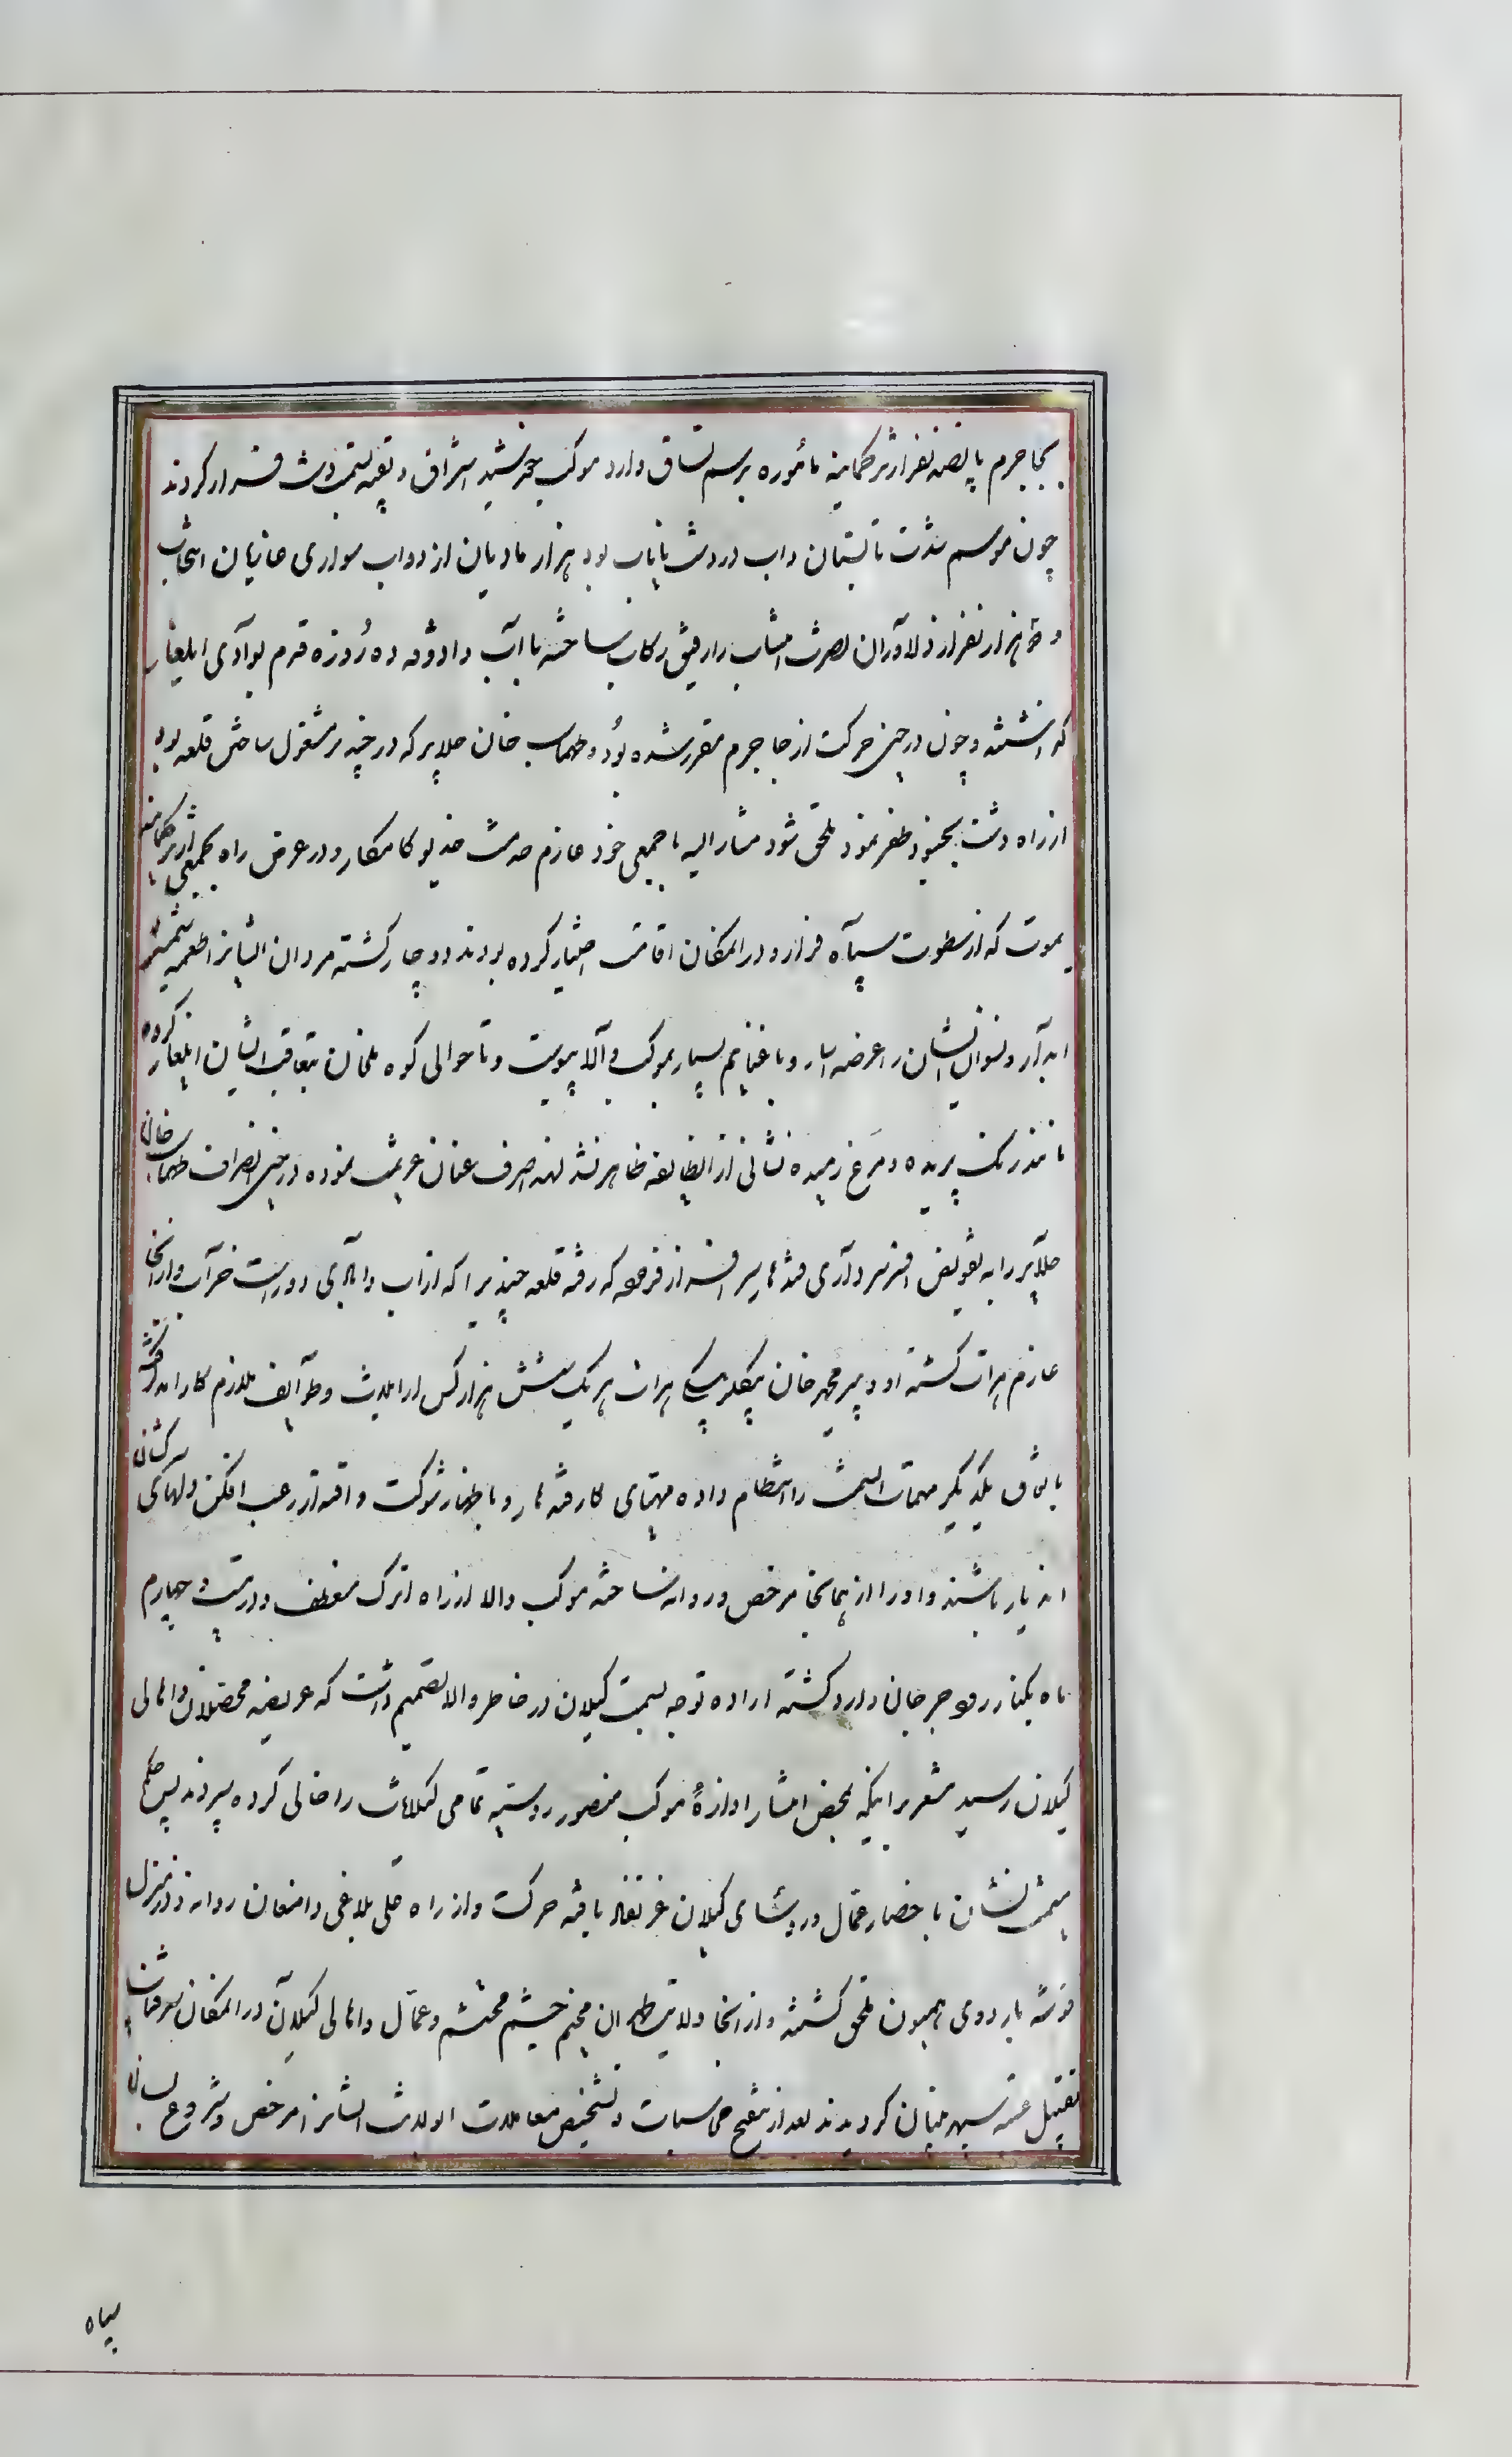 بجاجرم پانصد نفر از ترکمانیه مأموره برسم یساق وارد موکب خورشید اشراق و بقیه بسمت دشت فرار کردند
چون موسم شدت تابستان و آب در دشت نایاب بود هزار مادیان از دواب سواری غازیان انتخاب
و دو هزار نفر از دلاوران نصرت انتساب را رفیق رکاب ساخته با آب و آذوقه ده روزه قدم بوادی ایلغار
گذاشته و چون در حین حرکت از جاجرم مقرر شده بود طهماسب خان جلایر که در خیبر مشغول ساختن قلعه بود
از راه دشت بجنود ظفر نمود ملحق شود مشارالیه با جمعی خود عازم خدمت خدیو کامکار و در عرض راه بجمعی از ترکمانیه
یموت که از سطوت سپاه فرار و در المکان اقامت اختیار کرده بودند دوچار گشته مردان ایشانرا طعمه شمشیر
آبدار و نسوان ایشان را عرضه اسار و با غنایم بسیار بموکب والا پیوست و تا حوالی کوه بلخان بتعاقب ایشان ایلغار کرده
مانند رنگ پریده و مرغ رمیده نشانی از انطایفه ظاهر نشد لهذا صرف عنان عزیمت نموده در حین انصراف طهماسب خان
جلایر را به تفویض افسر سرداری قندهار سرافراز فرمود که رفته قلعه خیبر را که از آب و آبادی دور است خراب و از انجا
عازم هرات گشته او و پیرمحمد خان بیگلربیگی هرات هریک شش هزار کس از ایلات و طوایف ملازم کارآمد گرفته
باتفاق یکدیگر مهمات السمت را انتظام داده مهیای کار قندهار و باظهار شوکت و اقتدار رعب افکن دلهای سرکشان
اندیار باشند و او را از همانجا مرخص و روانه ساخته موکب والا از راه اترک منعطف و در بیست و چهارم
ماه بکنار رود جرجان وارد گشته اراده توجه بسمت گیلان در خاطر والا تصمیم داشت که عریضه محصلان و اهالی
گیلان رسید مشعر براینکه بمحض انتشار اوازهٔ موکب منصور روسیه تمامی گیلانات را خالی کرده سپردند پس حکم
باحضار عمال و روسای گیلان عز نفاذ یافته حرکت و از راه علی بلاغی دامغان روانه و در منزل
قوشه باردوی همیون ملحق گشته و از انجا ولایت طهران مخیم خیم محتشم و عمال و اهالی گیلان در المکان بشرفیاب
تقبیل عتبه سپهر بنیان گردیدند بعد از تنقیح محاسبات و تشخیص معاملات الولایت ایشانرا مرخص و شروع بسان
سپاه